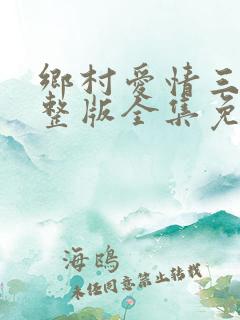 鄉村愛情三
整版全集免
海鴎
未任同意禁止转载